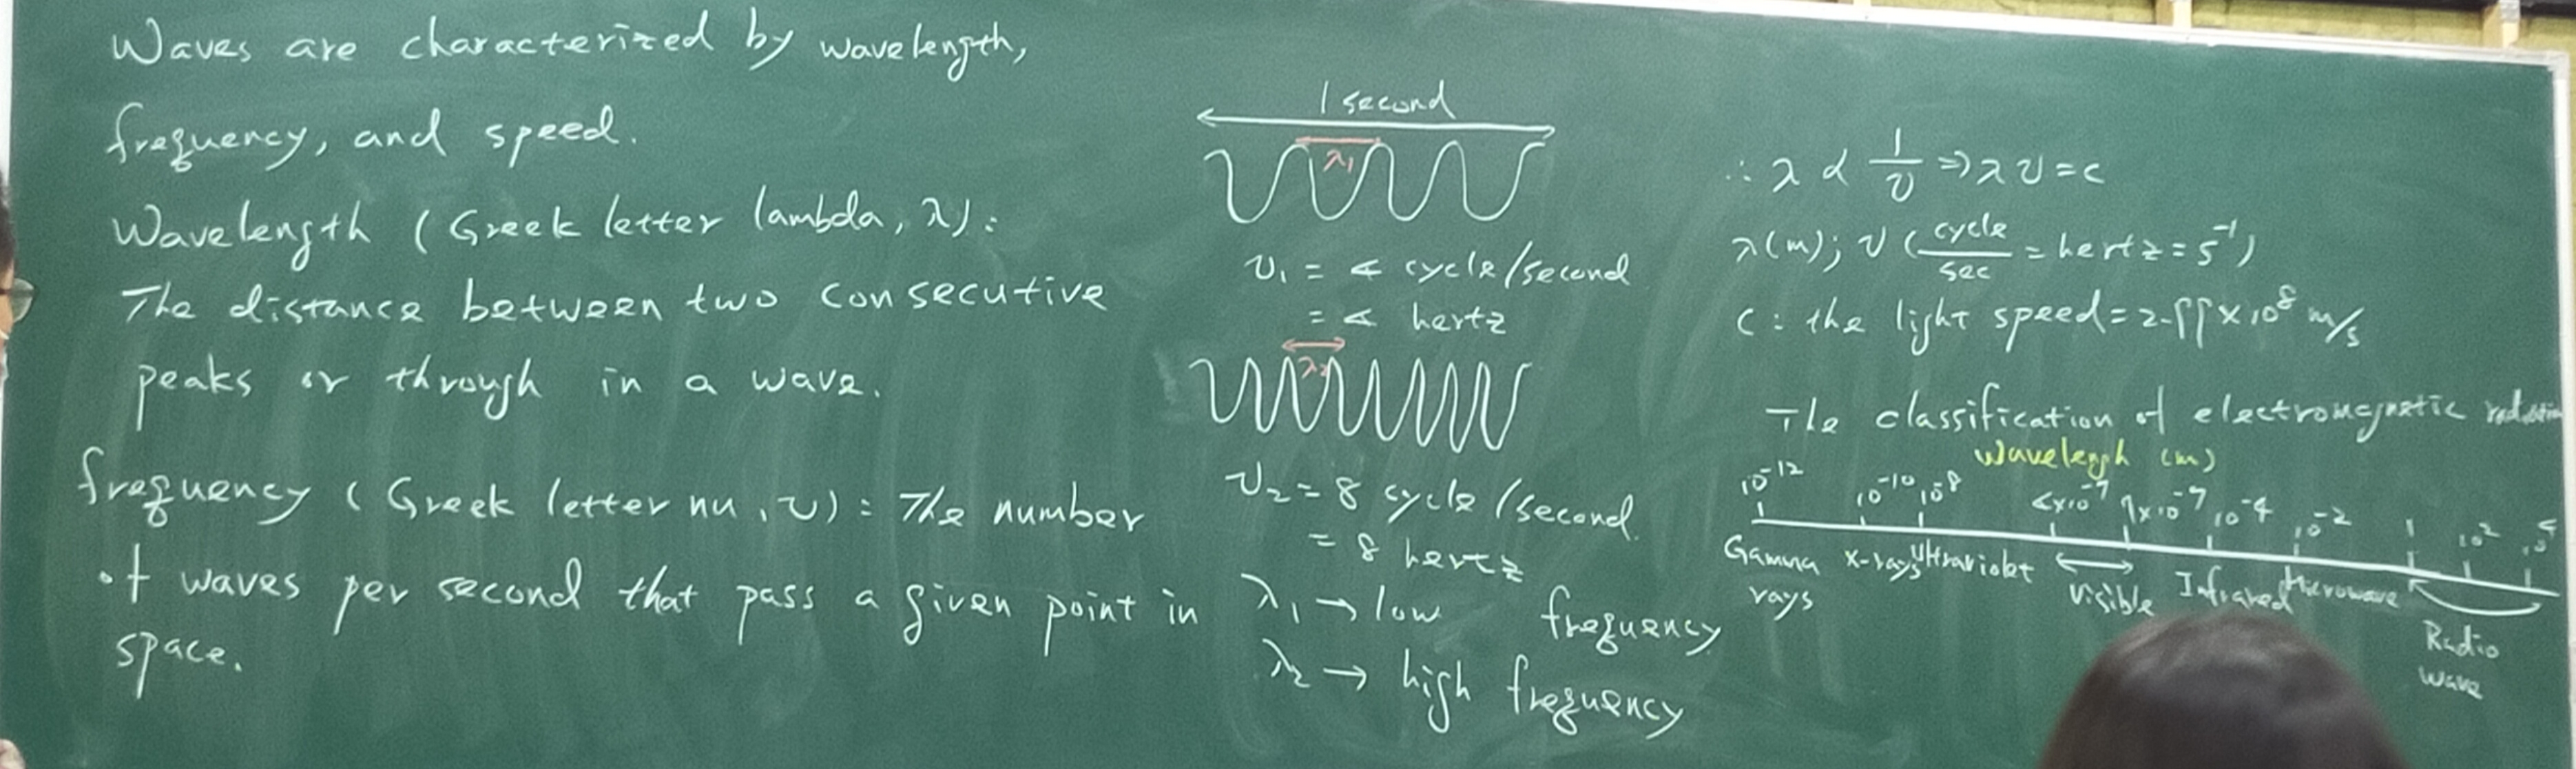 Waves are characterized by wavelength,
frequency, and speed.
Wavelength (Greek letter lambda, λ):
The distance between two consecutive
peaks or through in a wave.
frequency (Greek letter nu, ν): The number
of waves per second that pass a given point in
space.
1 second
λ₁
ν₁ = 4 cycle/second
= 4 hertz
λ₂
ν₂ = 8 cycle/second
= 8 hertz
λ₁ → low frequency
λ₂ → high frequency
∴ λ ∝ 1/ν ⇒ λν = c
λ(m); ν (cycle/sec = hertz = s⁻¹)
C: the light speed = 2.99 × 10⁸ m/s
The classification of electromagnetic radiation
Wavelength (m)
10⁻¹² 10⁻¹⁰ 10⁻⁸ 4×10⁻⁷ 7×10⁻⁷ 10⁻⁴ 10⁻² 1 10² 10⁴
Gamma rays X-rays Ultraviolet Visible Infrared Microwave
Radio
wave